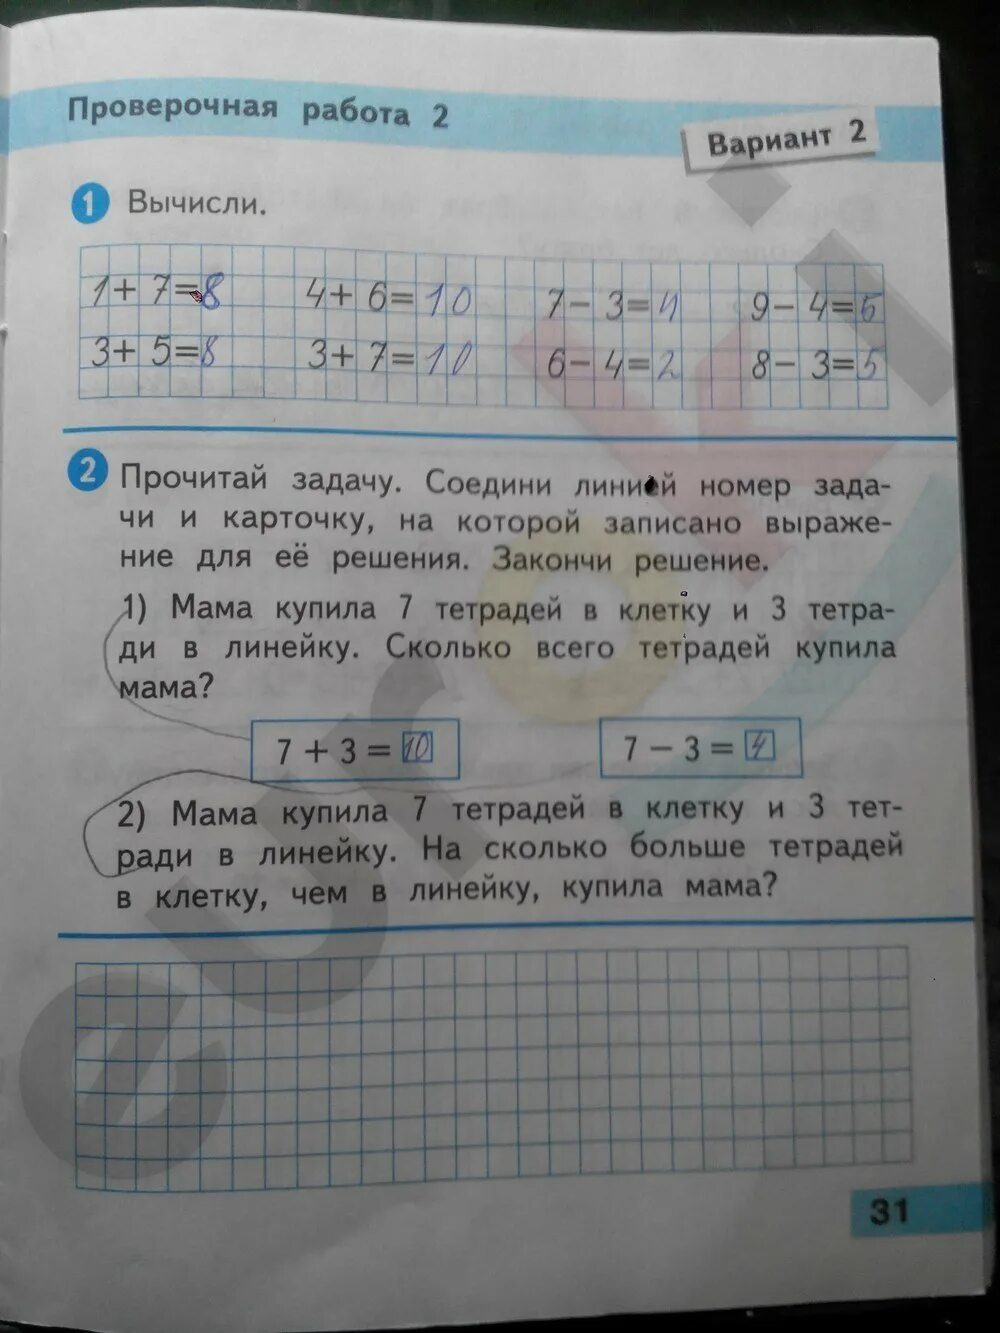 Проверочная работа 2
Вариант 2
1 Вычисли.
1+ 7=8 4+ 6=10 7− 3=4 9− 4=5
3+ 5=8 3+ 7=10 6− 4=2 8− 3=5
2 Прочитай задачу. Соедини линией номер зада-
чи и карточку, на которой записано выраже-
ние для её решения. Закончи решение.
1) Мама купила 7 тетрадей в клетку и 3 тетра-
ди в линейку. Сколько всего тетрадей купила
мама?
7 + 3 = 10 7 − 3 = 4
2) Мама купила 7 тетрадей в клетку и 3 тет-
ради в линейку. На сколько больше тетрадей
в клетку, чем в линейку, купила мама?
31
euroki